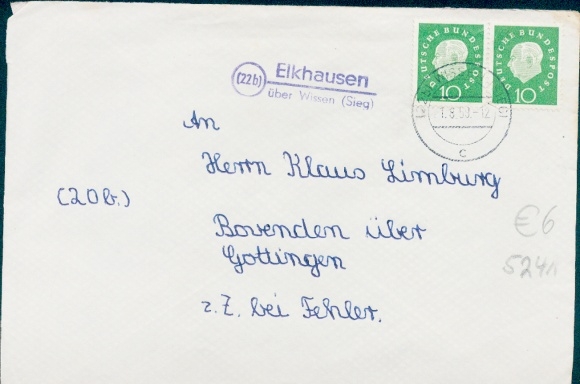 DEUTSCHE BUNDESPOST
10
DEUTSCHE BUNDESPOST
10
(22b) Elkhausen
über Wissen (Sieg)
1.8.59.-12
c
An
Herrn Klaus Limburg
(20b.)
Bovenden über
Gottingen
z.Z. bei Fehler.
€6
5241